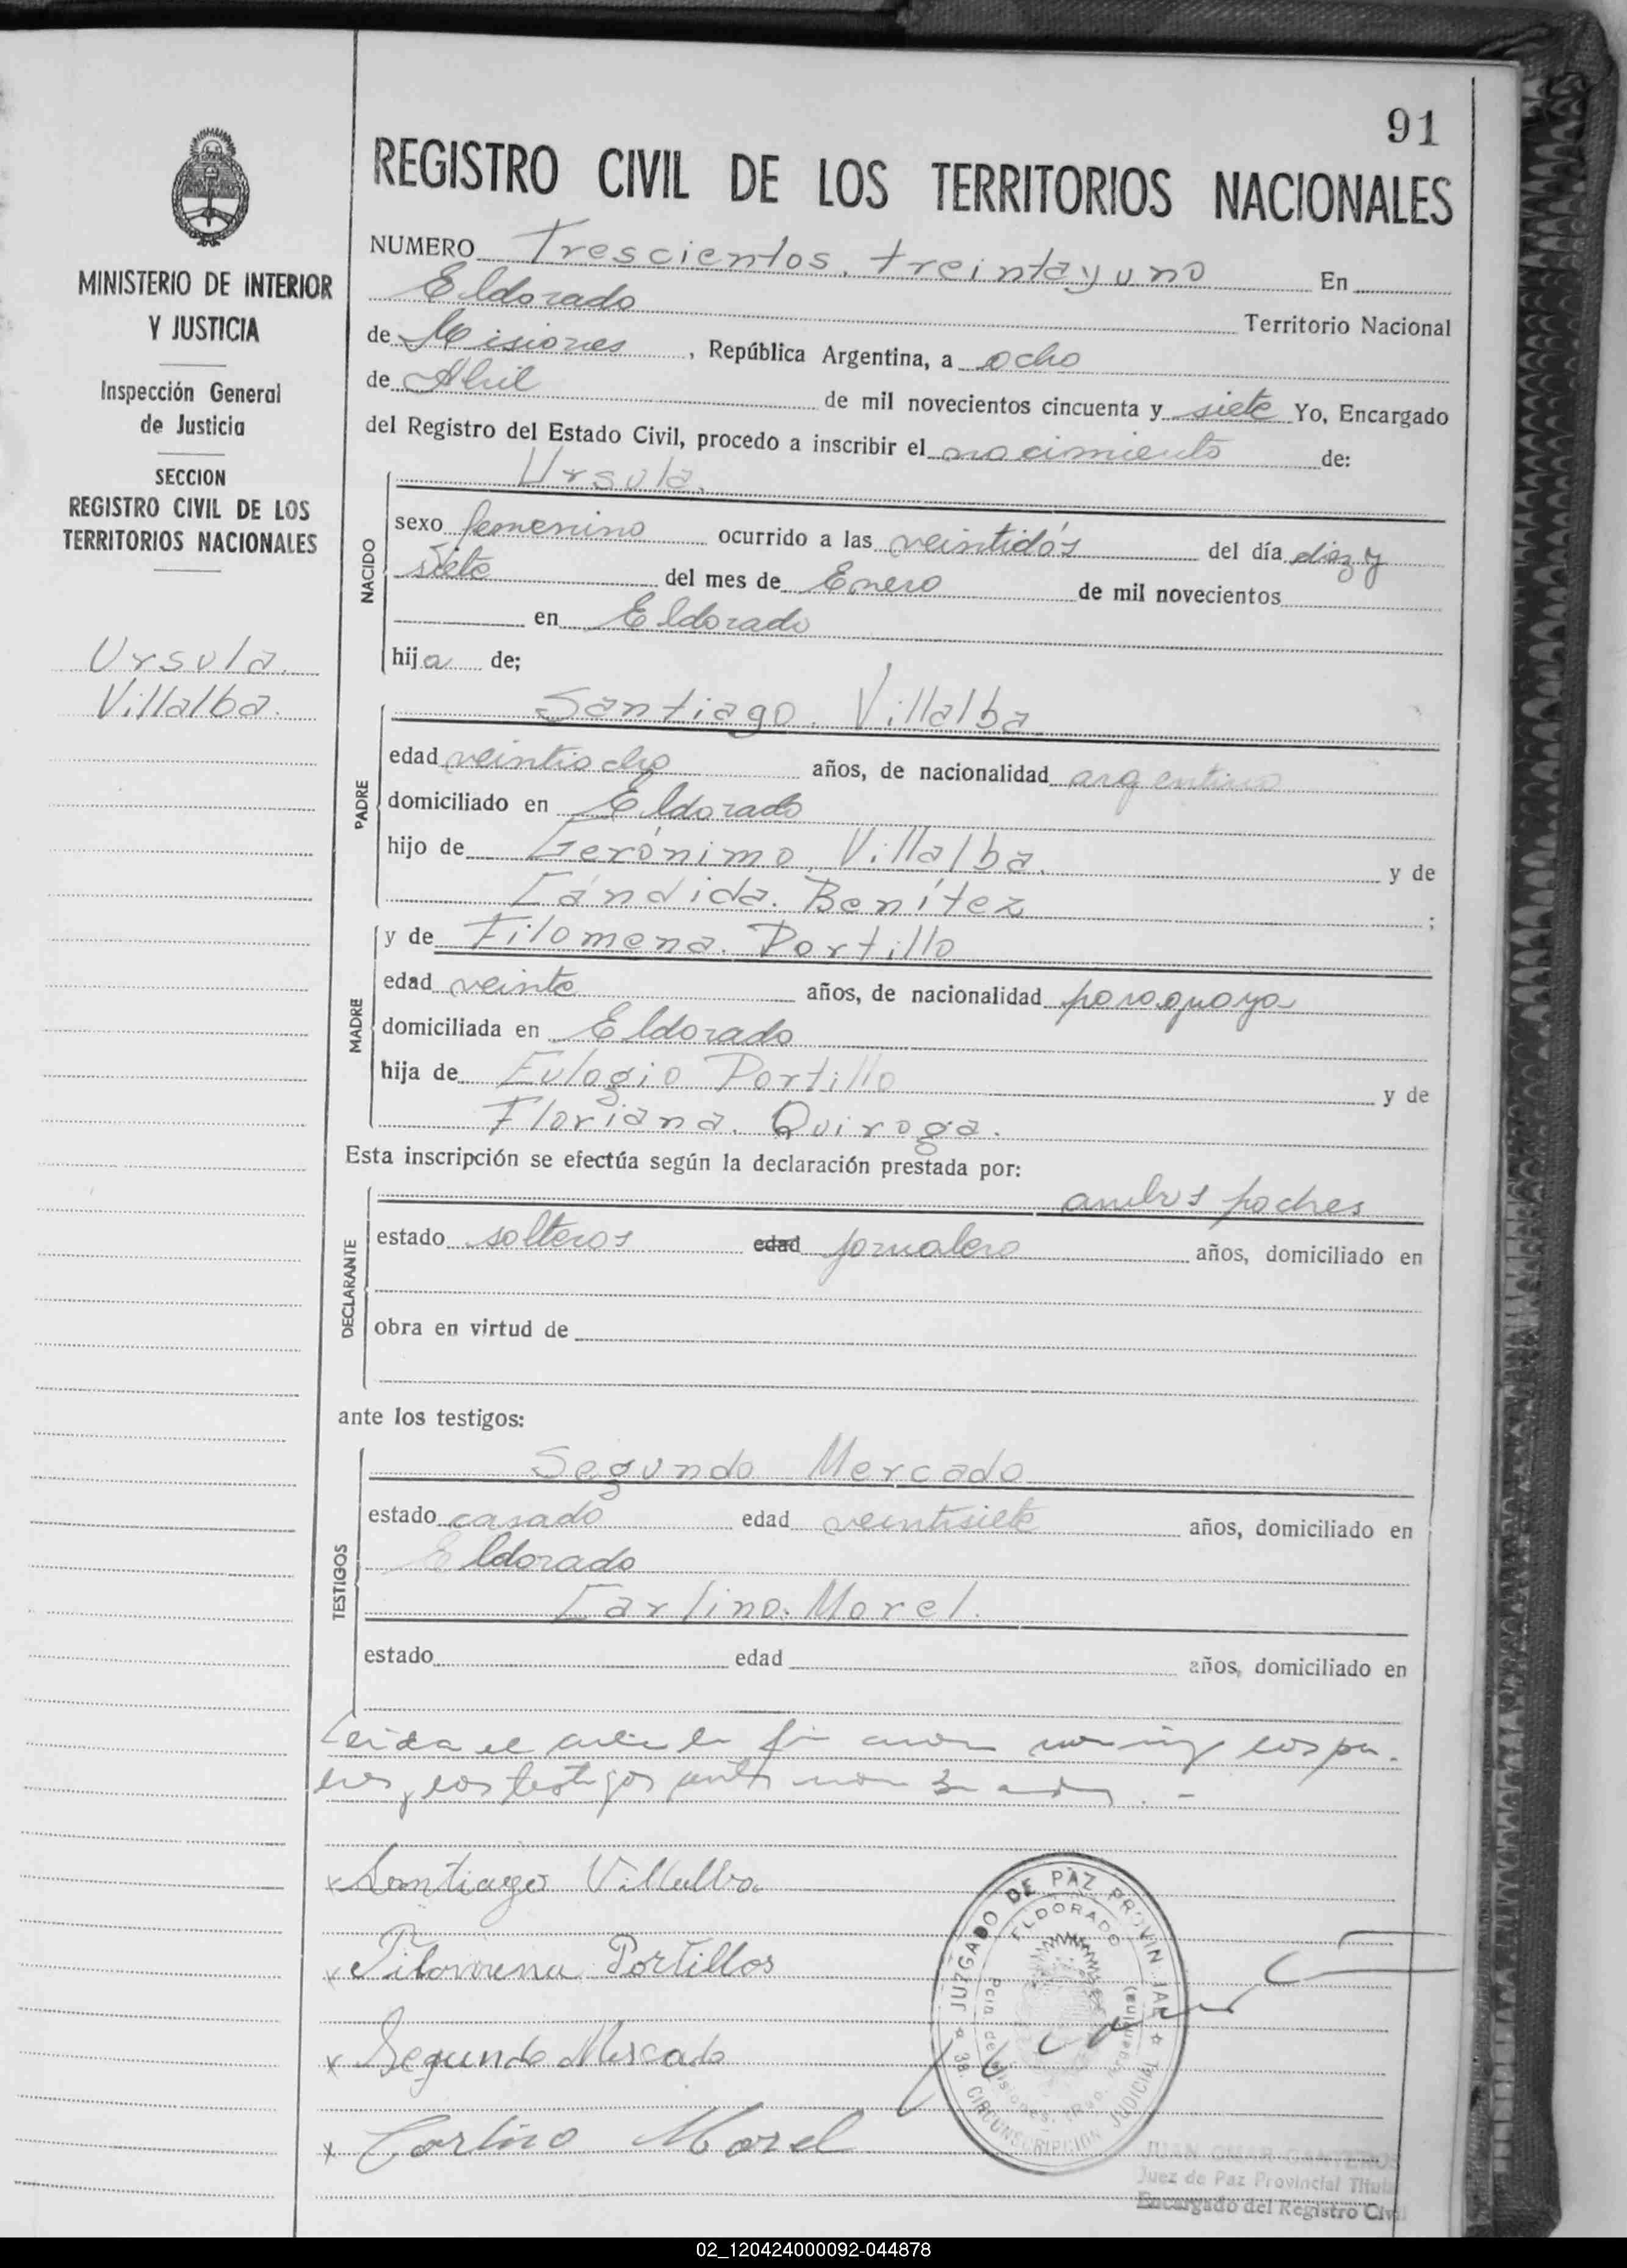 91
REGISTRO CIVIL DE LOS TERRITORIOS NACIONALES
MINISTERIO DE INTERIOR
Y JUSTICIA
Inspección General
de Justicia
SECCION
REGISTRO CIVIL DE LOS
TERRITORIOS NACIONALES
Ursula.
Villalba.
NUMERO Trescientos. treinta y uno En
Eldorado Territorio Nacional
de Misiones, República Argentina, a ocho
de Abril de mil novecientos cincuenta y siete Yo, Encargado
del Registro del Estado Civil, procedo a inscribir el nacimiento de:
NACIDO
Ursula.
sexo femenino ocurrido a las veintidós del día diez y
siete del mes de Enero de mil novecientos
en Eldorado
hija de;
PADRE
Santiago. Villalba
edad veintiocho años, de nacionalidad argentino
domiciliado en Eldorado
hijo de Gerónimo Villalba. y de
Cándida. Benítez ;
MADRE
y de Filomena. Portillo
edad veinte años, de nacionalidad paraguaya
domiciliada en Eldorado
hija de Eulogio Portillo y de
Floriana. Quiroga.
Esta inscripción se efectúa según la declaración prestada por:
DECLARANTE
ambos padres
estado solteros edad jornalero años, domiciliado en
obra en virtud de
ante los testigos:
TESTIGOS
Segundo Mercado
estado casado edad veintisiete años, domiciliado en
Eldorado
Carlino. Morel.
estado edad años, domiciliado en
Leida el acta la los pa-
los testigos
x Santiago Villalba
x Filomena Portillos
x Segundo Mercado
x Carlino Morel
JUZGADO DE PAZ PROVINCIAL
ELDORADO
Pcia. de Misiones. (Rep. Argentina)
3a. CIRCUNSCRIPCION JUDICIAL
JUAN OMAR CANTEROS
Juez de Paz Provincial Titula
Encargado del Registro Civi
02_120424000092-044878